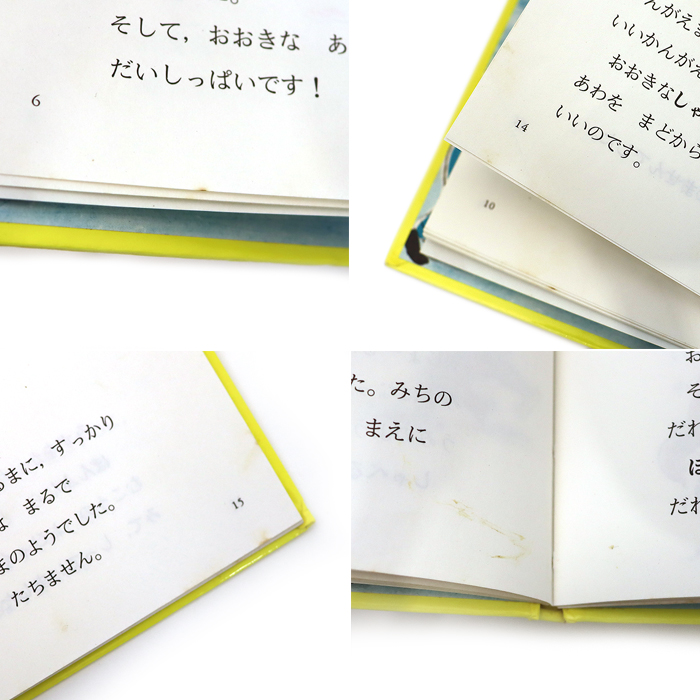 そして，おおきな　あ
だいしっぱいです！
6
んがえま
いいかんがえ
おおきなしゃ
あわを　まどから
いいのです。
14
10
るまに，すっかり
は　まるで
まのようでした。
たちません。
15
た。みちの
まえに
お
そ
だれ
ほ
だれ